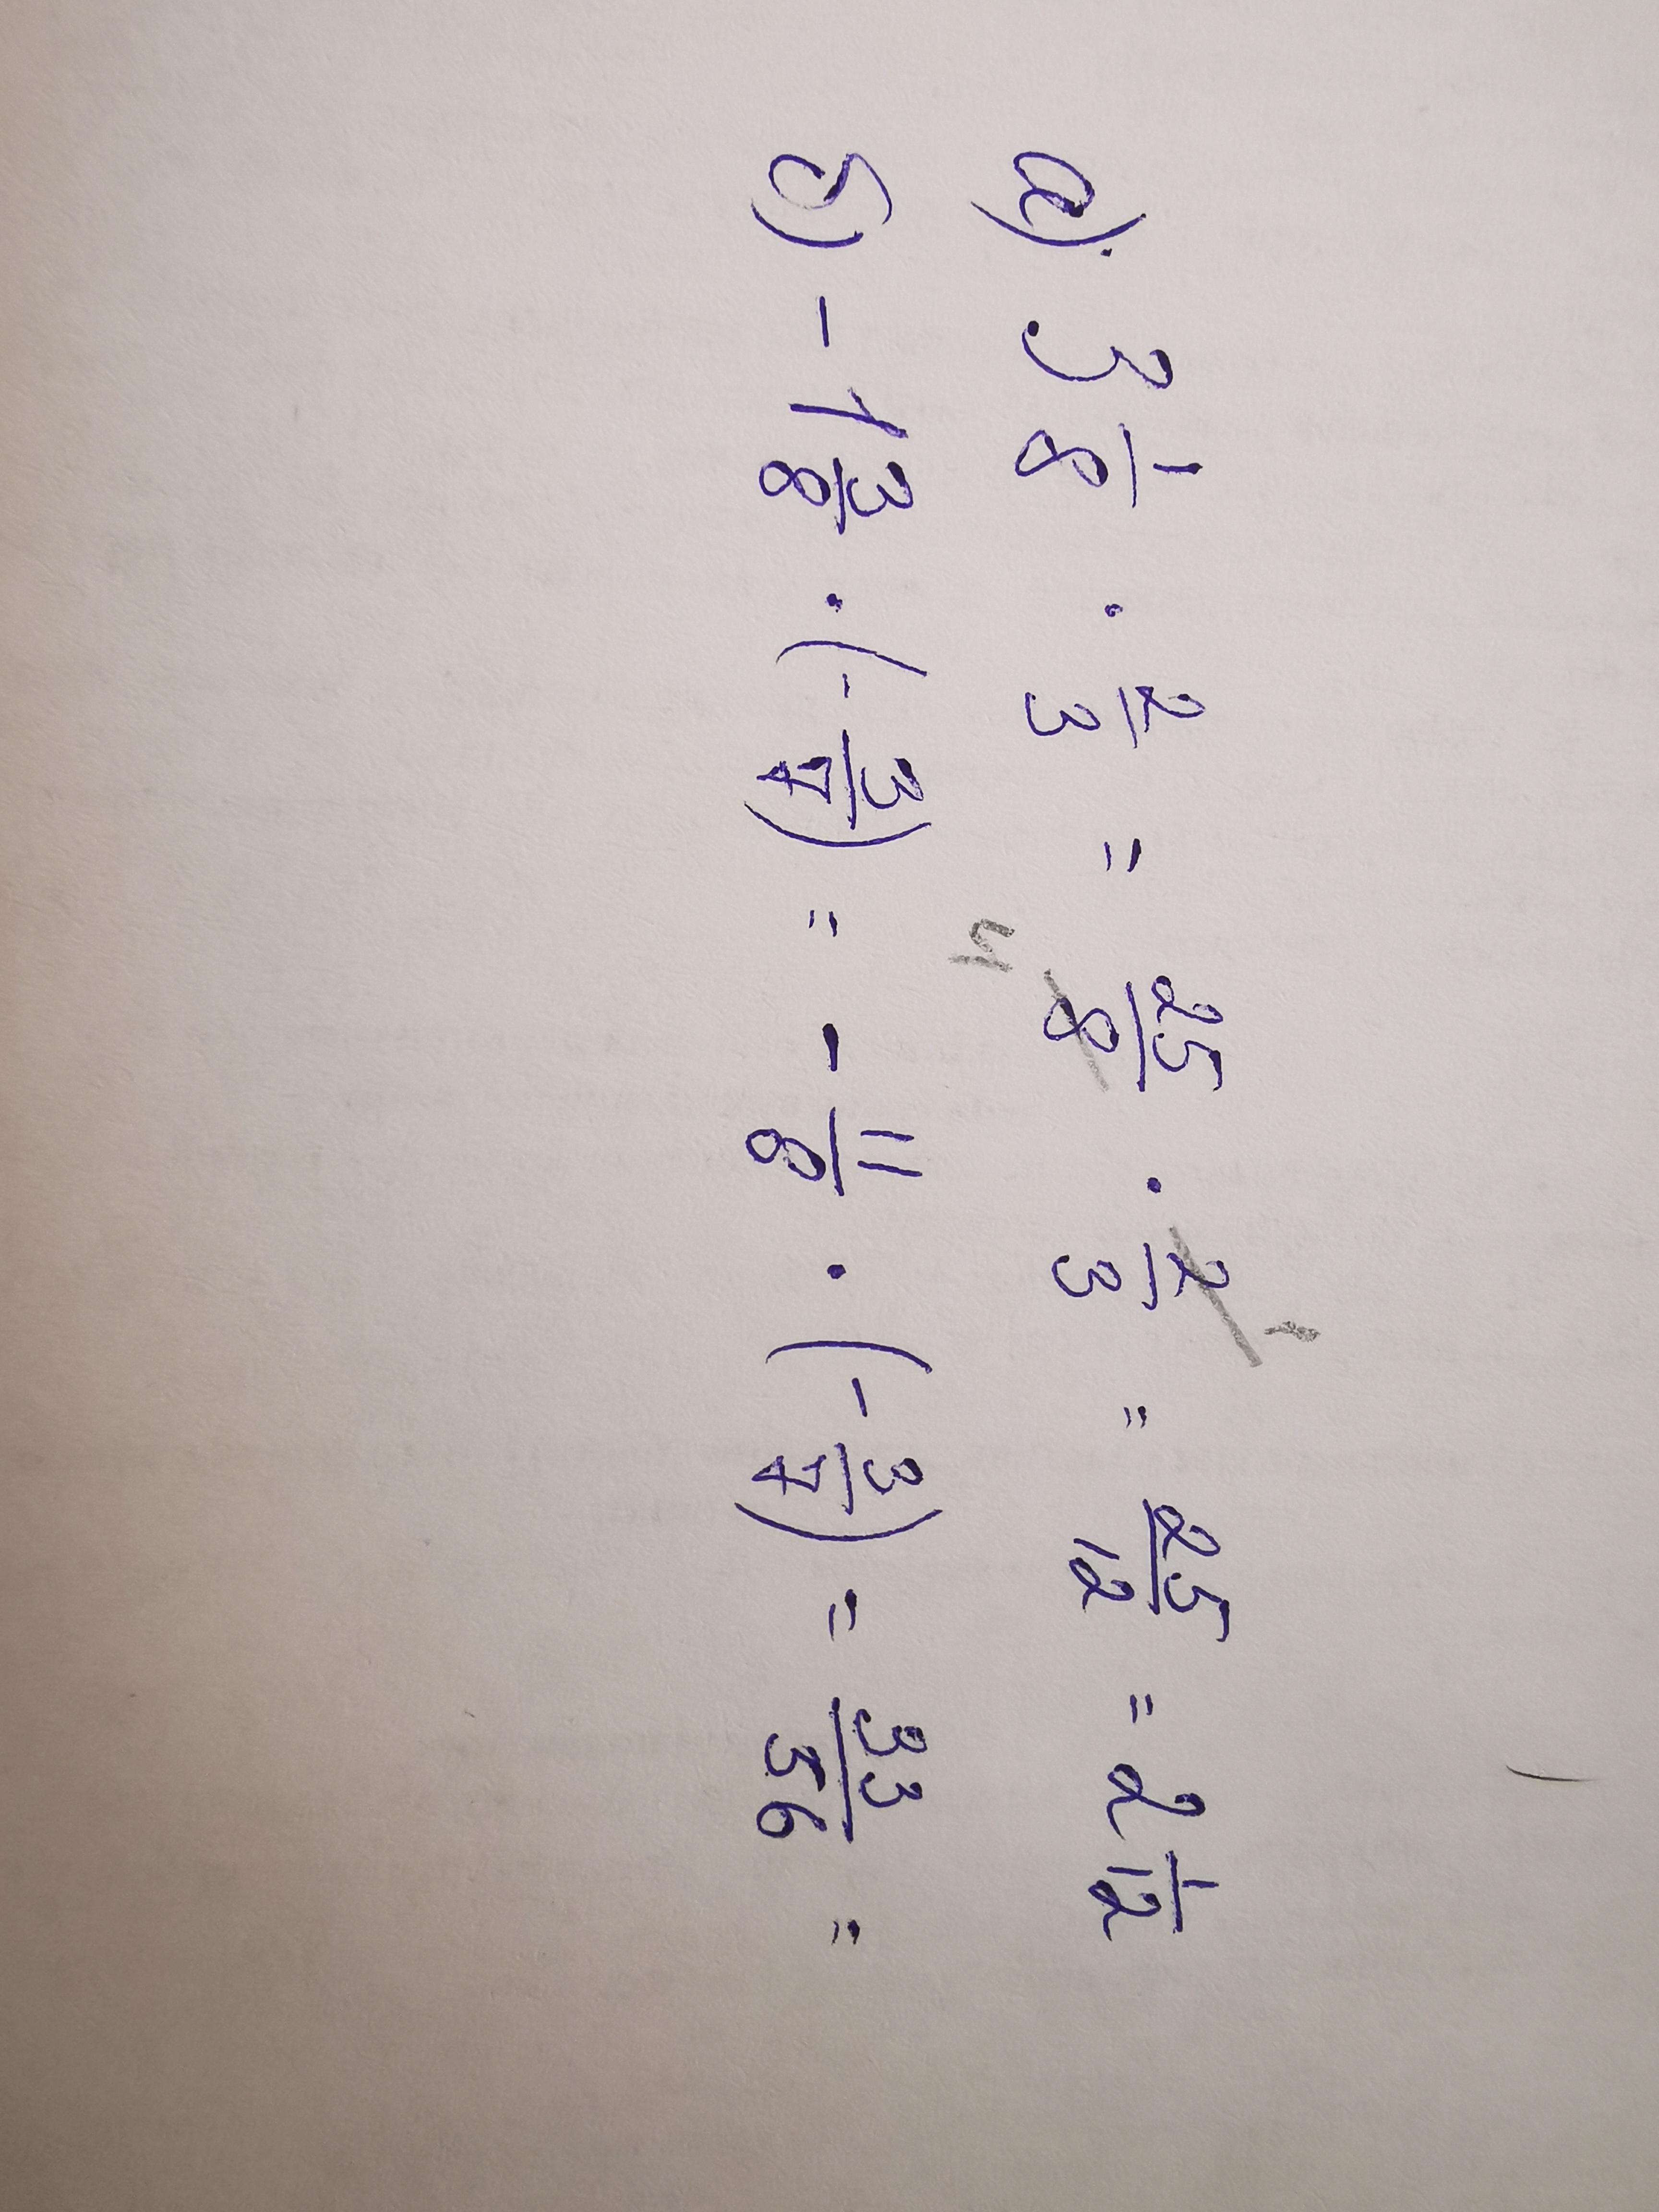 а) 3 1/8 · 2/3 = 25/8 4 · 2/3 1 = 25/12 = 2 1/12
б) - 1 3/8 · (- 3/7) = - 11/8 · (- 3/7) = 33/56 =